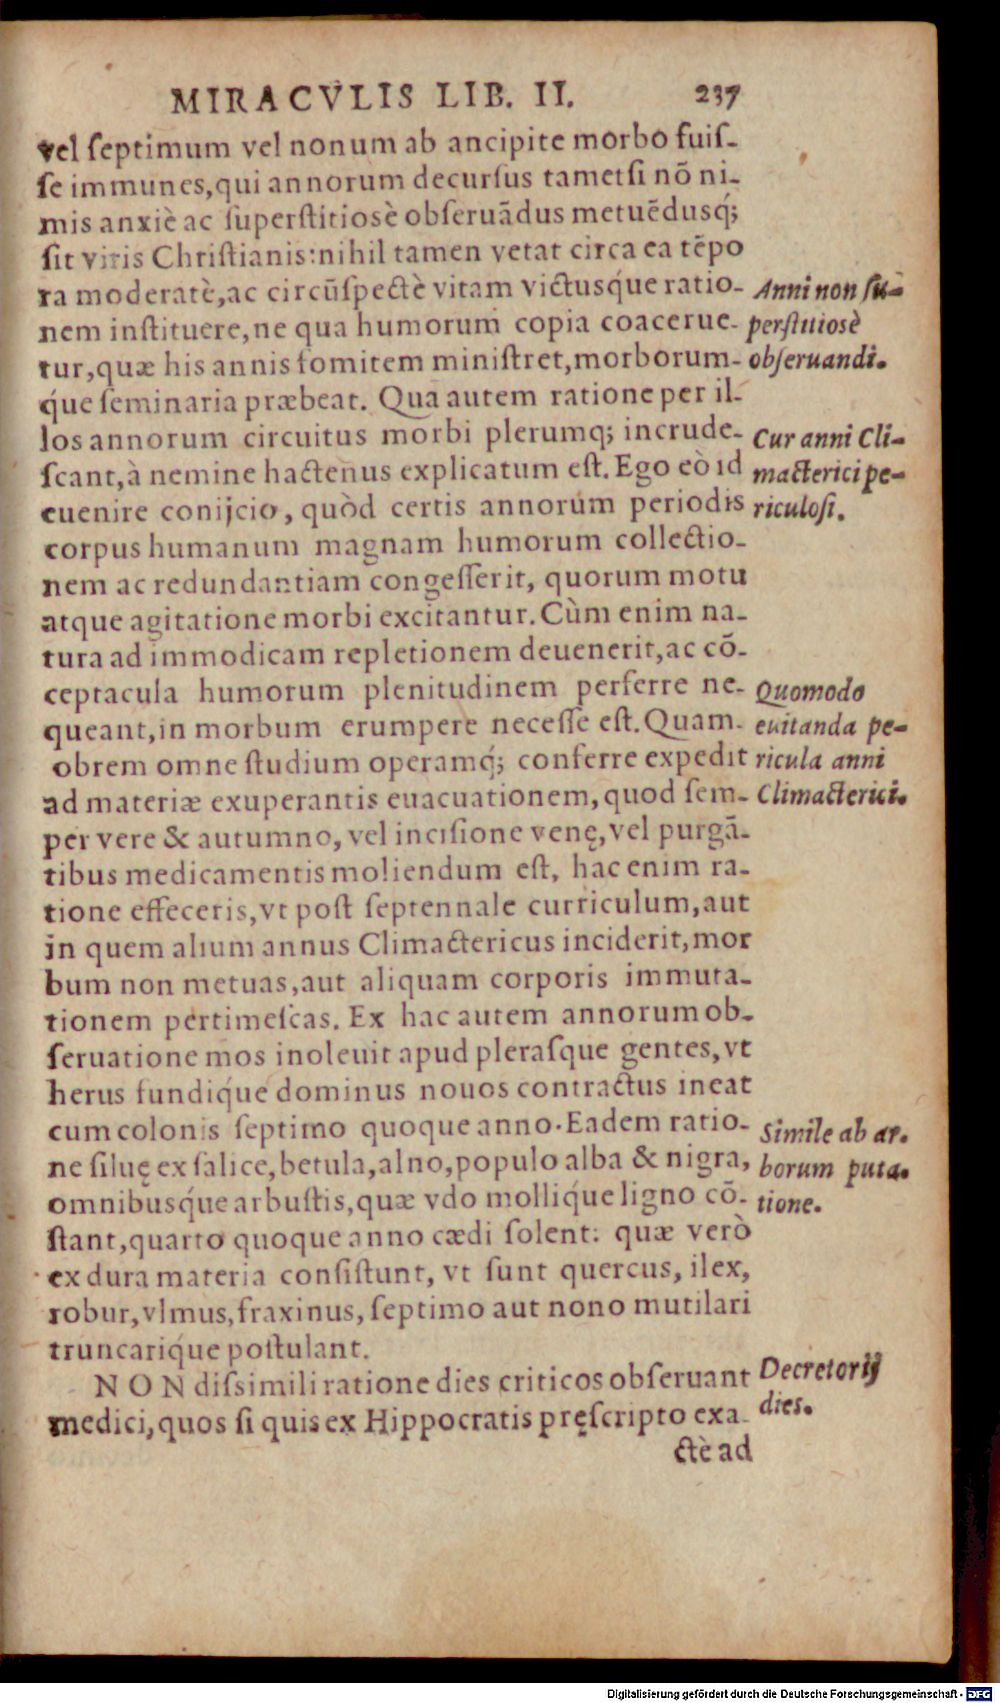 MIRACVLIS LIB. II. 237
vel ſeptimum vel nonum ab ancipite morbo fuiſ-
ſe immunes, qui annorum decurſus tametſi nõ ni-
mis anxiè ac ſuperſtitiosè obſeruãdus metuẽdusq́;
ſit viris Chriſtianis: nihil tamen vetat circa ea tẽpo
ra moderatè, ac circũſpectè vitam victusq́ue ratio-
nem inſtituere, ne qua humorum copia coacerue-
tur, quæ his annis fomitem miniſtret, morborum-
q́ue ſeminaria præbeat. Qua autem ratione per il-
los annorum circuitus morbi plerumq; incrude-
ſcant, à nemine hactenus explicatum eſt. Ego eò id
euenire conijcio, quòd certis annorum periodis
corpus humanum magnam humorum collectio-
nem ac redundantiam congeſſerit, quorum motu
atque agitatione morbi excitantur. Cùm enim na-
tura ad immodicam repletionem deuenerit, ac cõ-
ceptacula humorum plenitudinem perferre ne-
queant, in morbum erumpere neceſſe eſt. Quam-
obrem omne ſtudium operamq́; conferre expedit
ad materiæ exuperantis euacuationem, quod ſem-
per vere & autumno, vel inciſione venę, vel purgã-
tibus medicamentis moliendum eſt, hac enim ra-
tione effeceris, vt poſt ſeptennale curriculum, aut
in quem alium annus Climactericus inciderit, mor
bum non metuas, aut aliquam corporis immuta-
tionem pertimeſcas. Ex hac autem annorum ob-
ſeruatione mos inoleuit apud plerasque gentes, vt
herus fundiq́ue dominus nouos contractus ineat
cum colonis ſeptimo quoque anno. Eadem ratio-
ne ſiluę ex ſalice, betula, alno, populo alba & nigra,
omnibusq́ue arbuſtis, quæ vdo molliq́ue ligno cõ-
ſtant, quarto quoque anno cædi ſolent: quæ verò
ex dura materia conſiſtunt, vt ſunt quercus, ilex,
robur, vlmus, fraxinus, ſeptimo aut nono mutilari
truncariq́ue poſtulant.
NON diſsimili ratione dies criticos obſeruant
medici, quos ſi quis ex Hippocratis pręſcripto exa-
ctè ad
Anni non ſu-
perſtitiosè
obſeruandi.
Cur anni Cli-
macterici pe-
riculoſi.
Quomodo
euitanda pe-
ricula anni
Climacterici.
Simile ab ar-
borum puta-
tione.
Decretorij
dies.
Digitalisierung gefördert durch die Deutsche Forschungsgemeinschaft - DFG